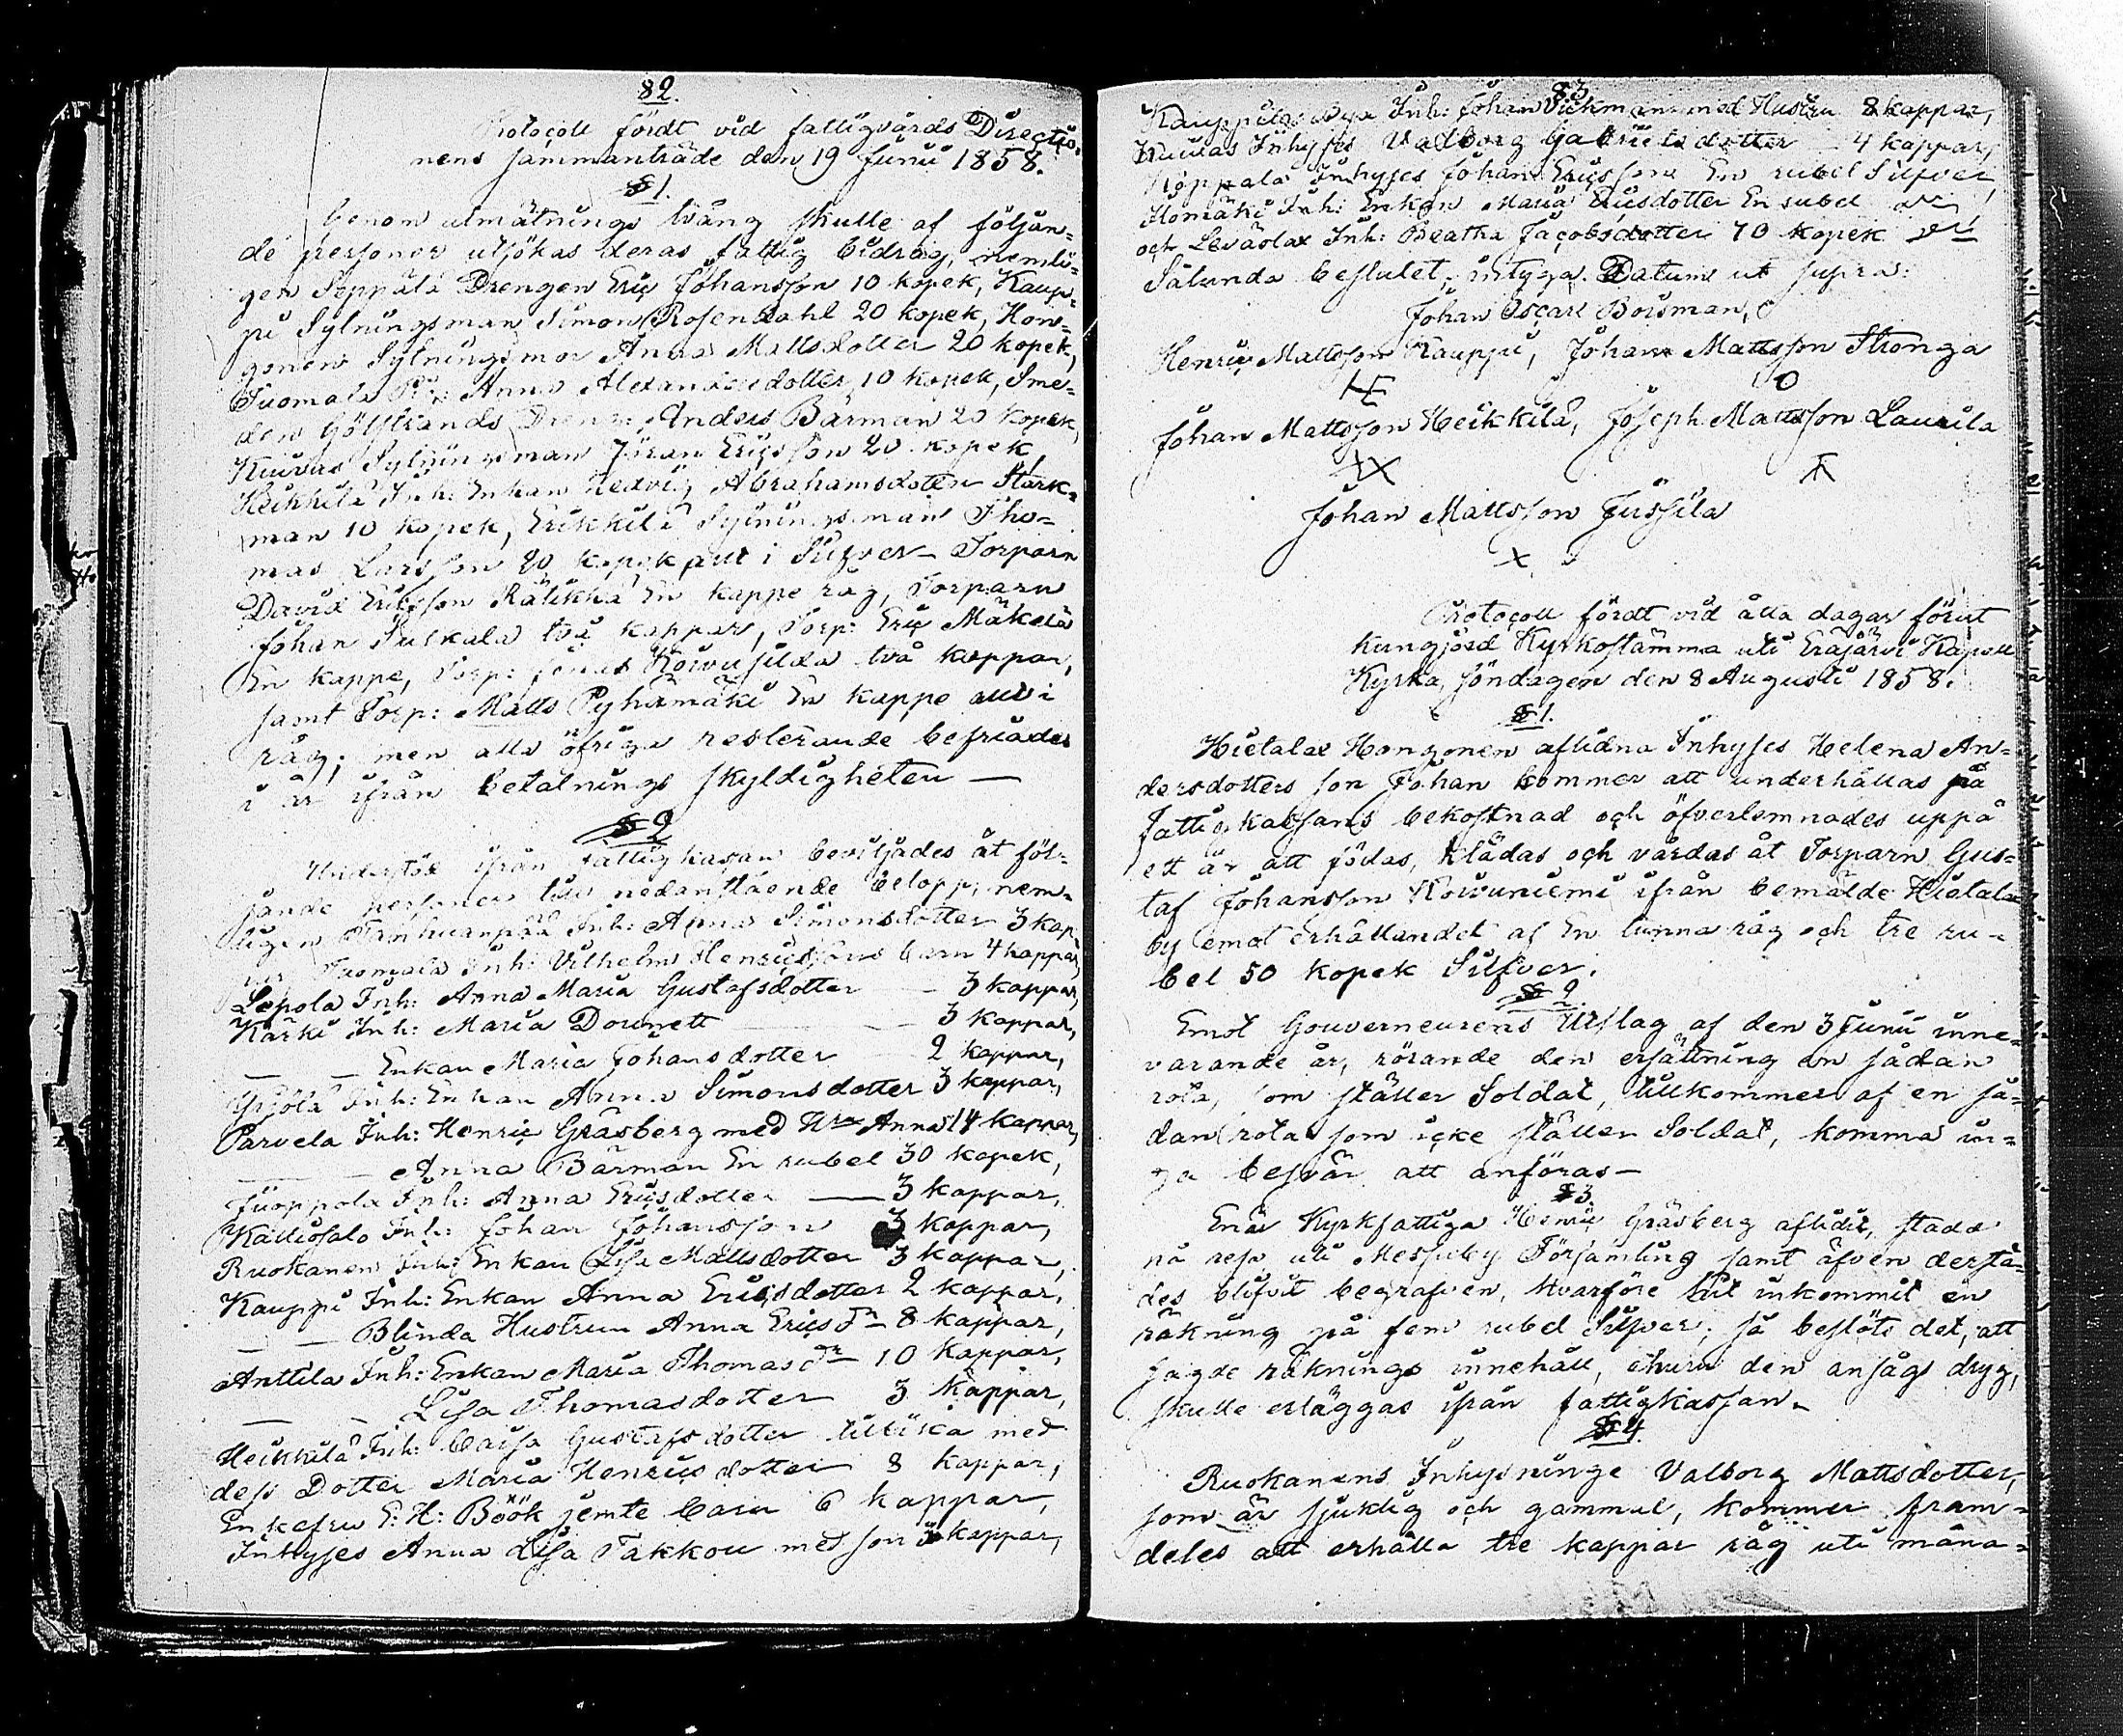 82.
Protocoll fördt vid fattigvårds Directio-
nens sammanträde den 19 Junii 1858.
§ 1.
Genom utmätnings tvång skulle af följan-
de personer utsökas deras fattig bidrag, nemli-
gen Seppälä Drengen Eric Johansson 10 kopek, Kaup-
pi Sytningsman Simon Rosendahl 20 kopek, Hon-
gonens Sytningsmor Anna Mattsdotter 20 kopek,
Tuomala Anna Alexandersdotter 10 kopek, Sme-
den Gölstrands Dreng Anders Bärman 20 kopek,
Kuuvas Sytningsman Jöran Ericsson 20 kopek,
Heikkilä Inh: Enkan Hedvig Abrahamsdotter Stark-
man 10 kopek, Erikkilä Sytningsman Tho-
mas Larsson 20 kopek allt i Silfver – Torparn
David Ericsson Rätikkä En kappe råg, Torparn
Johan Suskala två kappar, Torp: Eric Mäkelä
En kappe, Torp: Jonas Koivusilda två kappar,
samt Torp: Matts Pyhämäki En kappe allt i
råg; men alla öfriga resterande befriades
i år ifrån betalnings skyldigheten —
§ 2
Understöd ifrån fattigkassan beviljades åt föl-
jande personer till nedanstående belopp, nem-
ligen Tanhuanpää Inh: Anna Simonsdotter 3 kap
par Tuomala Inh: Vilhelm Henricssons barn 4 kappar,
Lepola Inh: Anna Maria Gustafsdotter — 3 kappar,
Kärki Inh: Maria Dounett — 3 kappar,
— — Enkan Maria Johansdotter — 2 kappar,
Yrjölä Inh: Enkan Anna Simonsdotter 3 kappar,
Parvela Inh: Henric Gräsberg med Hru Anna 14 kappar,
— — Anna Bärman En rubel 30 kopek,
Juoppola Inh: Anna Ericsdotter — 3 kappar,
Kalliosalo Inh: Johan Johansson 3 kappar,
Ruokanen Inh: Enkan Lisa Mattsdotter 3 kappar,
Kauppi Inh: Enkan Anna Ericsdotter 2 kappar,
— — Blinda Hustrun Anna Erics Dr 8 kappar,
Anttila Inh: Enkan Maria Thomas dr 10 kappar,
— — Lisa Thomasdotter 3 kappar,
Heikkilä Inh: Caisa Gustafsdotter tillika med
dess Dotter Maria Henricsdotter 8 kappar,
Enkefru E: H: Böök jemte barn 6 kappar,
Inhyses Anna Lisa Takkou med son 3 kappar,
83.
Kauppila Bya Inh: Johan Vickman med Hustru 8 kappar,
Kuuvas Inhyses Valborg Gabrielsdotter — 4 kappar,
Koppala Inhyses Johan Ericsson En rubel Silfver,
Ilomäki Inh: Enkan Maria Ericsdotter En rubel
och Leväslax Inh: Beatha Jacobsdotter 70 kopek
Sålunda beslutet, intyga. Datum ut supra:
Johan Oscar Boisman,
Henric Mattsson Kauppi, Johan Mattsson Stronga
Johan Mattsson Heikkilä, Joseph Mattsson Laurila
Johan Mattsson Jussila
Protocoll fördt vid åtta dagar förut
kungjord Kyrkostämma uti Eräjärvi Kapell
Kyrka, söndagen den 8 Augusti 1858.
§ 1.
Hietalax Hongonen aflidna Inhyses Helena An-
dersdotters son Johan kommer att underhållas på
Fattigkassans bekostnad och öfverlemnades uppå
ett år att födas, klädas och vårdas åt Torparn Gus-
taf Johansson Koivuniemi ifrån bemälde Hietala
by emot erhållandet af En tunna råg och tre ru-
bel 50 kopek Silfver.
§ 2.
Emot Gouverneurens Utslag af den 3 Junii inne-
varande år, rörande den ersättning en sådan
rota, som ställer Soldat, tillkommer af en så-
dan rota som icke ställer Soldat, komma in-
ga besvär att anföras —
§ 3.
Enär Kyrkfattiga Henric Gräsberg aflidit, stadd
på resa, uti Messuby Församling samt äfven derstä-
des blifvit begrafven, hvarföre hit inkommit en
räkning på fem rubel Silfver; så beslöts det, att
sagde räknings innehåll, ehuru den ansågs dryg,
skulle erläggas ifrån fattigkassan.
§ 4.
Ruokanens Inhysninge Valborg Mattsdotter,
som är sjuklig och gammal, kommer fram-
deles att erhålla tre kappar råg uti måna-